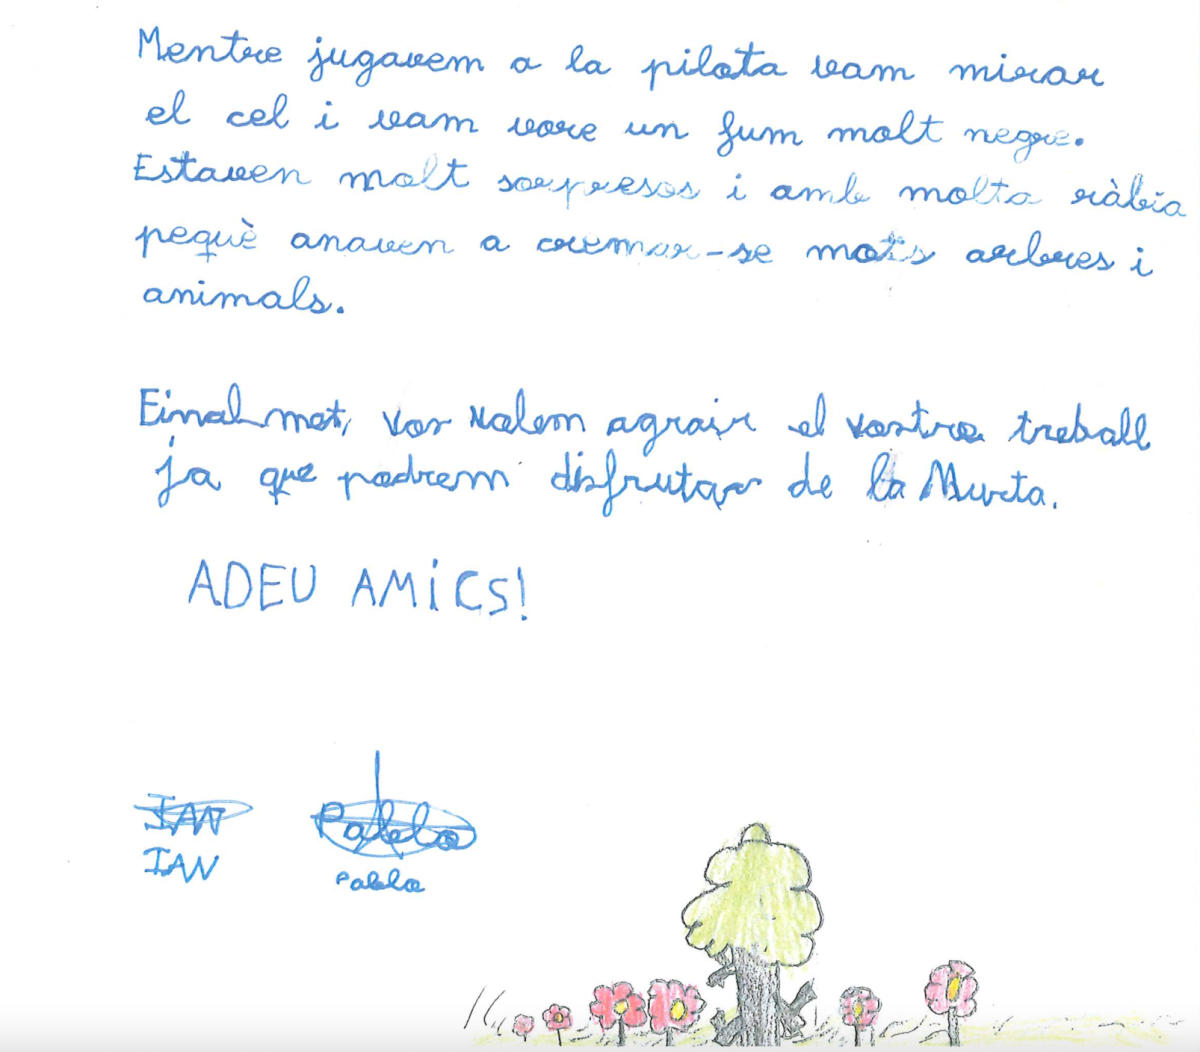 Mentre jugavem a la pilota vam mirar
el cel i vam vore un fum molt negre.
Estaven molt sorpresos i amb molta ràbia
pequè anaven a cremar-se mots arbres i
animals.
Finalmet, vos volem agrair el vostre treball
ja que podrem disfrutar de la Murta.
ADEU AMICS!
IAN Pablo
IAN Pablo